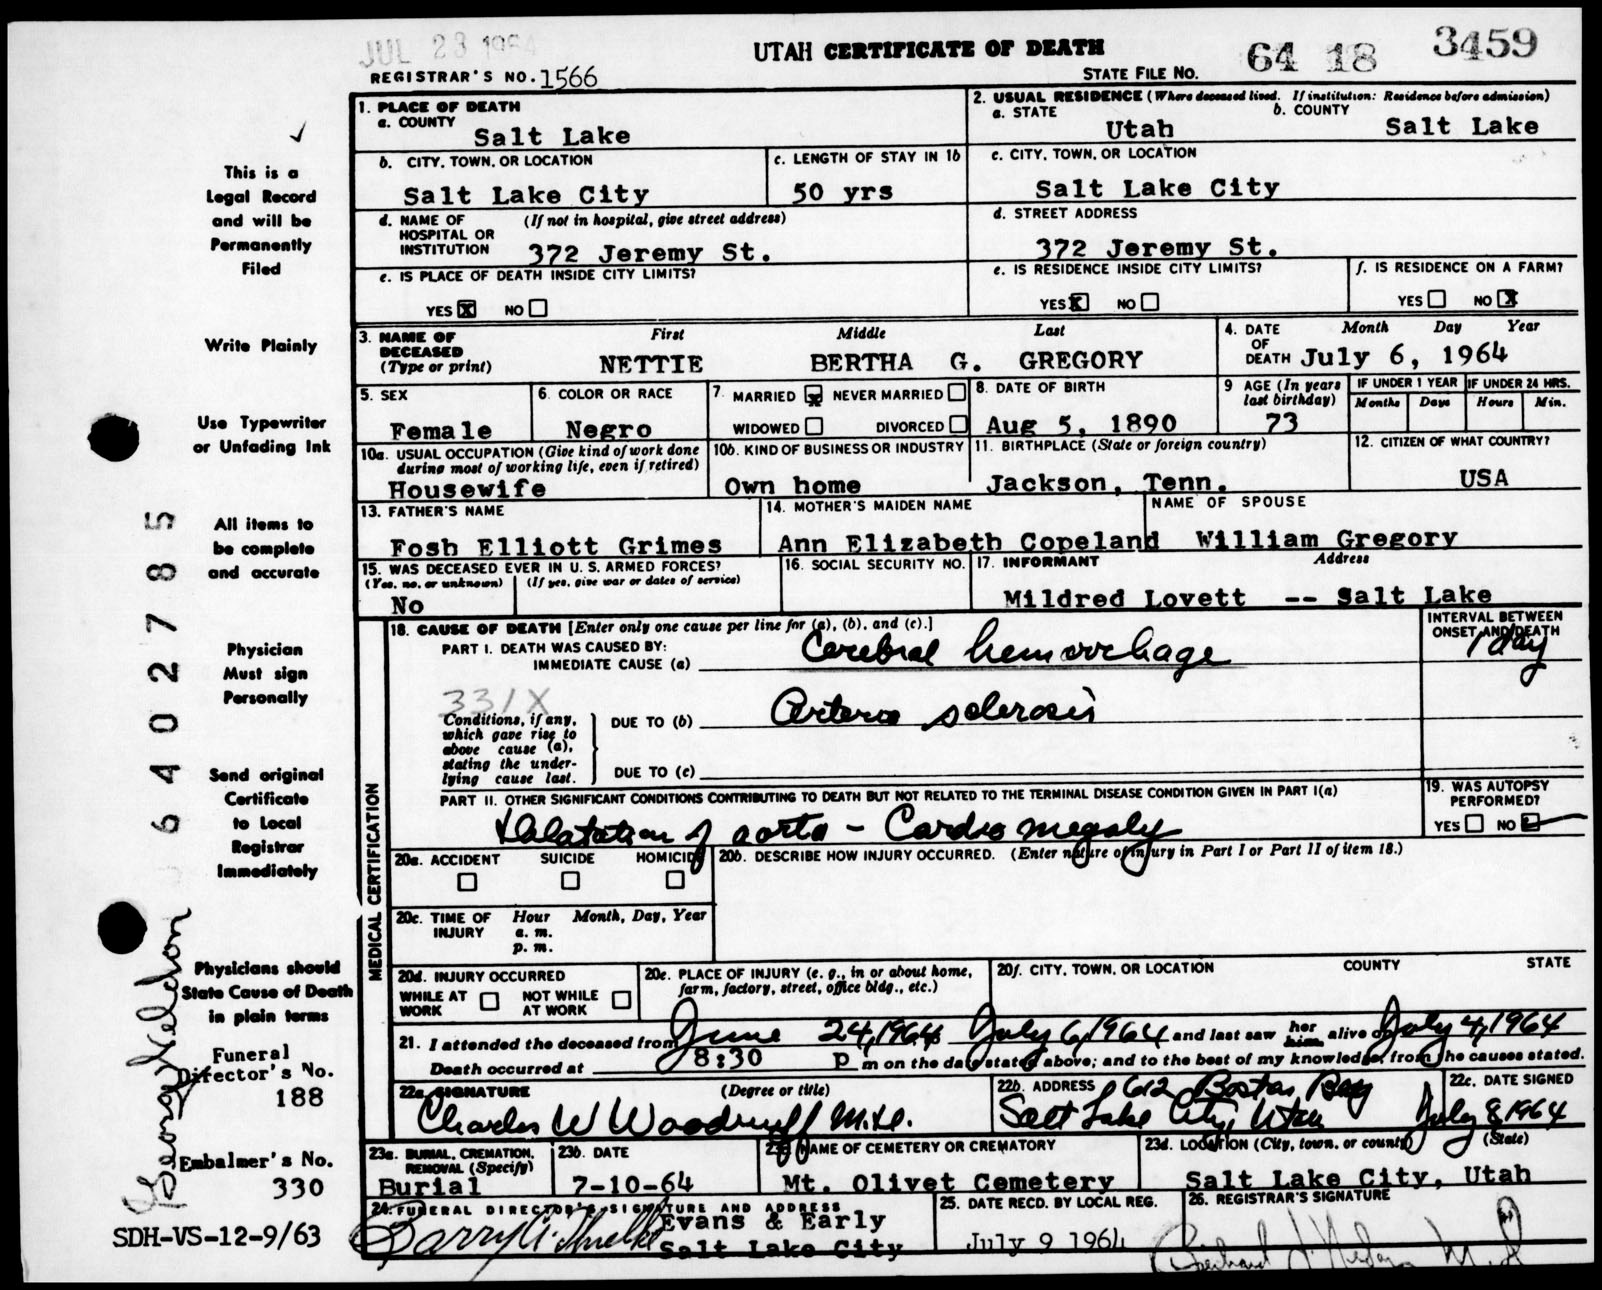 JUL 23 1964
UTAH CERTIFICATE OF DEATH
REGISTRAR'S NO. 1566
STATE FILE NO. 64 18 3459
1. PLACE OF DEATH
a. COUNTY
Salt Lake
2. USUAL RESIDENCE (Where deceased lived. If institution: Residence before admission)
a. STATE b. COUNTY
Utah Salt Lake
b. CITY, TOWN, OR LOCATION
Salt Lake City
c. LENGTH OF STAY IN 1b
50 yrs
c. CITY, TOWN, OR LOCATION
Salt Lake City
d. NAME OF HOSPITAL OR INSTITUTION (If not in hospital, give street address)
372 Jeremy St.
d. STREET ADDRESS
372 Jeremy St.
e. IS PLACE OF DEATH INSIDE CITY LIMITS?
YES X NO
e. IS RESIDENCE INSIDE CITY LIMITS?
YES X NO
f. IS RESIDENCE ON A FARM?
YES NO X
3. NAME OF DECEASED (Type or print)
First Middle Last
NETTIE BERTHA G. GREGORY
4. DATE OF DEATH Month Day Year
July 6, 1964
5. SEX
Female
6. COLOR OR RACE
Negro
7. MARRIED X NEVER MARRIED
WIDOWED DIVORCED
8. DATE OF BIRTH
Aug 5, 1890
9 AGE (In years last birthday)
73
IF UNDER 1 YEAR IF UNDER 24 HRS.
Months Days Hours Min.
10a. USUAL OCCUPATION (Give kind of work done during most of working life, even if retired)
Housewife
10b. KIND OF BUSINESS OR INDUSTRY
Own home
11. BIRTHPLACE (State or foreign country)
Jackson, Tenn.
12. CITIZEN OF WHAT COUNTRY?
USA
13. FATHER'S NAME
Fosh Elliott Grimes
14. MOTHER'S MAIDEN NAME
Ann Elizabeth Copeland
NAME OF SPOUSE
William Gregory
15. WAS DECEASED EVER IN U. S. ARMED FORCES?
(Yes, no, or unknown) (If yes, give war or dates of service)
No
16. SOCIAL SECURITY NO.
17. INFORMANT Address
Mildred Lovett -- Salt Lake
MEDICAL CERTIFICATION
18. CAUSE OF DEATH [Enter only one cause per line for (a), (b), and (c).]
INTERVAL BETWEEN ONSET AND DEATH
PART I. DEATH WAS CAUSED BY:
IMMEDIATE CAUSE (a) Cerebral hemorrhage 1 day
331X
Conditions, if any, which gave rise to above cause (a), stating the underlying cause last.
DUE TO (b) Arterio sclerosis
DUE TO (c)
PART II. OTHER SIGNIFICANT CONDITIONS CONTRIBUTING TO DEATH BUT NOT RELATED TO THE TERMINAL DISEASE CONDITION GIVEN IN PART I(a)
Dilatation of aorta - Cardio megaly
19. WAS AUTOPSY PERFORMED?
YES NO
20a. ACCIDENT SUICIDE HOMICIDE
20b. DESCRIBE HOW INJURY OCCURRED. (Enter nature of injury in Part I or Part II of item 18.)
20c. TIME OF INJURY Hour Month, Day, Year
a. m.
p. m.
20d. INJURY OCCURRED
WHILE AT WORK NOT WHILE AT WORK
20e. PLACE OF INJURY (e. g., in or about home, farm, factory, street, office bldg., etc.)
20f. CITY, TOWN, OR LOCATION COUNTY STATE
21. I attended the deceased from June 24, 1964 July 6, 1964 and last saw her him alive on July 4, 1964
Death occurred at 8:30 p m on the date stated above; and to the best of my knowledge, from the causes stated.
22a. SIGNATURE (Degree or title)
Charles W Woodruff M.D.
22b. ADDRESS 612 Boston Bldg
Salt Lake City, Utah
22c. DATE SIGNED
July 8 1964
23a. BURIAL, CREMATION, REMOVAL (Specify)
Burial
23b. DATE
7-10-64
23c. NAME OF CEMETERY OR CREMATORY
Mt. Olivet Cemetery
23d. LOCATION (City, town, or county) (State)
Salt Lake City, Utah
24. FUNERAL DIRECTOR'S SIGNATURE AND ADDRESS
Evans & Early
Salt Lake City
25. DATE RECD. BY LOCAL REG.
July 9 1964
26. REGISTRAR'S SIGNATURE
This is a
Legal Record
and will be
Permanently
Filed
Write Plainly
Use Typewriter
or Unfading Ink
All items to
be complete
and accurate
Physician
Must sign
Personally
Send original
Certificate
to Local
Registrar
Immediately
Physicians should
State Cause of Death
in plain terms
Funeral
Director's No.
188
Embalmer's No.
330
SDH-VS-12-9/63
6402785